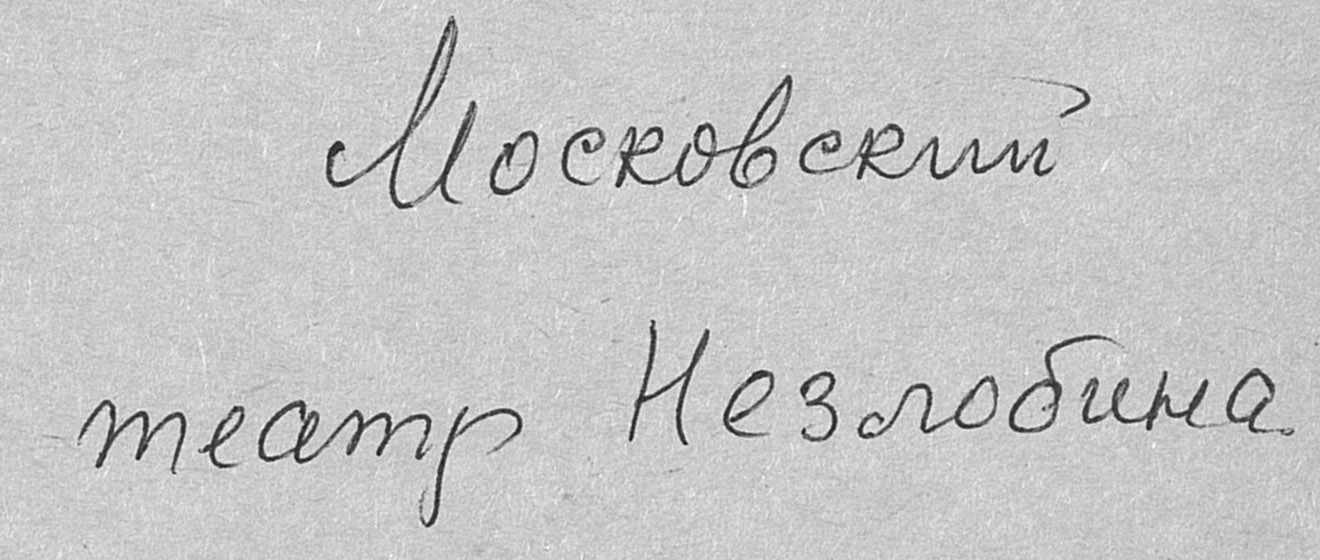 Московский
театр Незлобина.